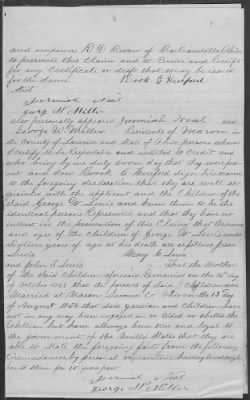 and empower R D Brown of Portsmouth Ohio
to prosecute this Claim and to Receive and Receipt
for any Certificate or draft that may be issued
for the same Brook G Hereford
Attest
Jeremiah
George W. Miller
also personally appeared Jeremiah and
George W Miller Residents of Mason in
the County of Lawrence and State of Ohio persons whom
I certify to be reputable and entitled to credit and
who being by me duly sworn say that they were pres
ent and saw Brook G Hereford sign his name
to the foregoing declaration that they are well ac
quainted with the applicant and the Children of the
said George W Lewis and know them to be the
identical persons Represented and that they have no
interest in the prosecution of this Claim that the names
and ages of the children of George W Lewis under
eighteen years of age at his death are as follows
Lewis Mary E Lewis
and John T Lewis that the Mother
of the said Children aforesaid Remarried on the 15th day
of October 1863 that the parents of said
Married at Mason Lawrence Co Ohio on the 13 day
of August 1854 that said Guardian and Children have
not in any way been engaged in or aided or abetted the
rebellion but have always been true and loyal to
the government of the United States that they are
able to state the foregoing facts from the following
circumstances by personal acquaintance having
to them for 20 years past
Jeremiah
George W Miller